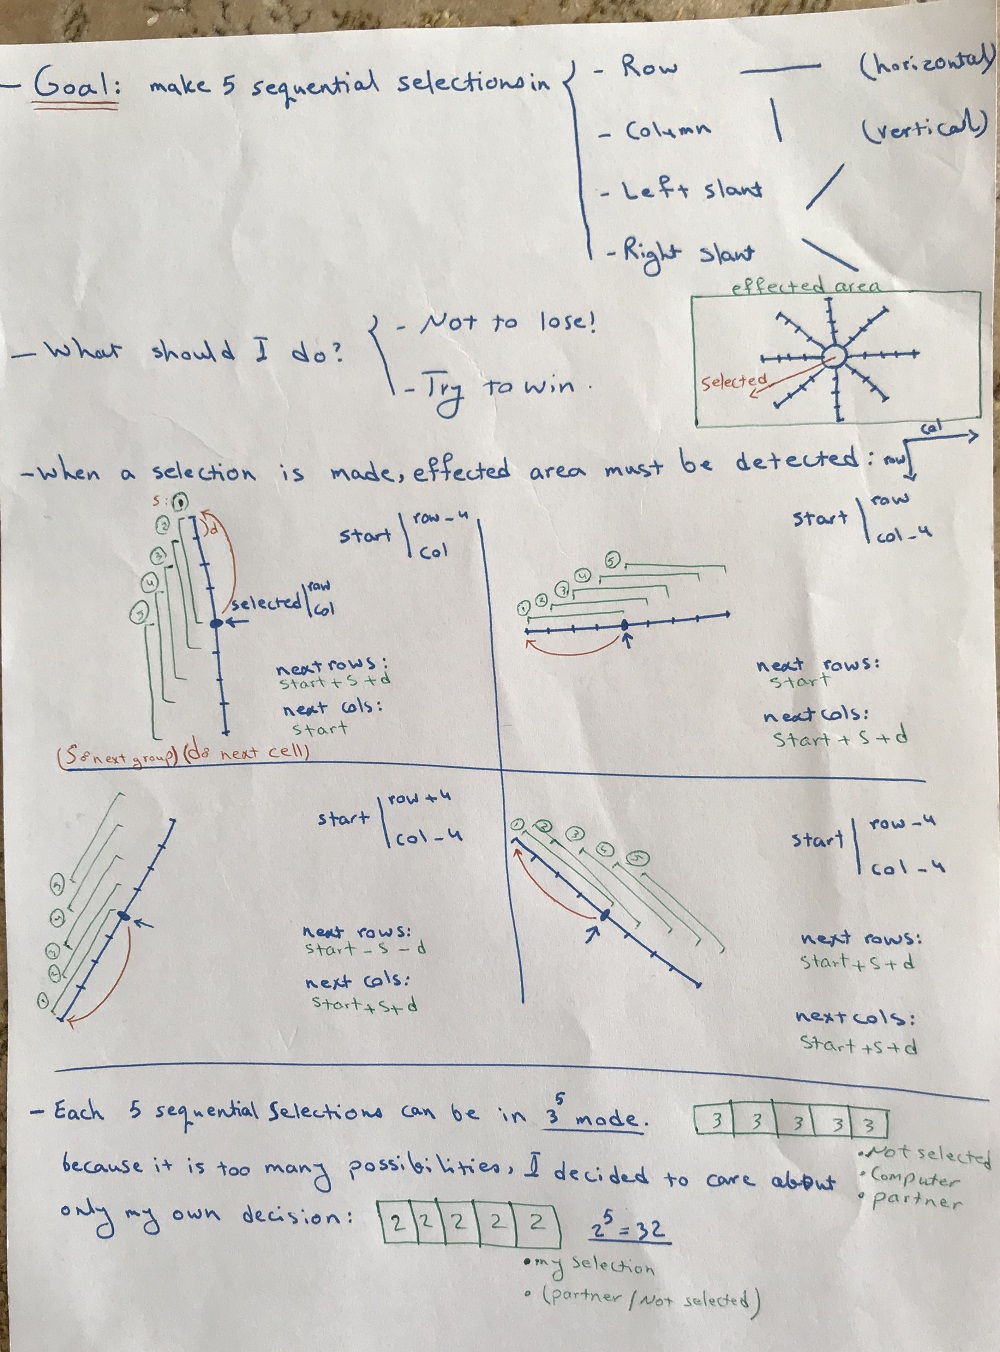 - Goal: make 5 sequential selections in
- Row (horizontal)
- Column (vertical)
- Left slant
- Right slant
effected area
selected
- What should I do?
- Not to lose!
- Try to win.
- When a selection is made, effected area must be detected:
col
row
S: 1
2
3
4
5
d
selected row
col
start row-4
col
next rows:
start+s+d
next cols:
start
(S: next group) (d: next cell)
start row
col-4
1 2 3 4 5
next rows:
start
next cols:
start+s+d
start row+4
col-4
5
4
3
2
1
next rows:
start-s-d
next cols:
start+s+d
start row-4
col-4
1 2 3 4 5
next rows:
start+s+d
next cols:
start+s+d
- Each 5 sequential selections can be in 3^5 mode.
3 3 3 3 3
• Not selected
• Computer
• partner
because it is too many possibilities, I decided to care about
only my own decision:
2 2 2 2 2
2^5 = 32
• my selection
• (partner / Not selected)